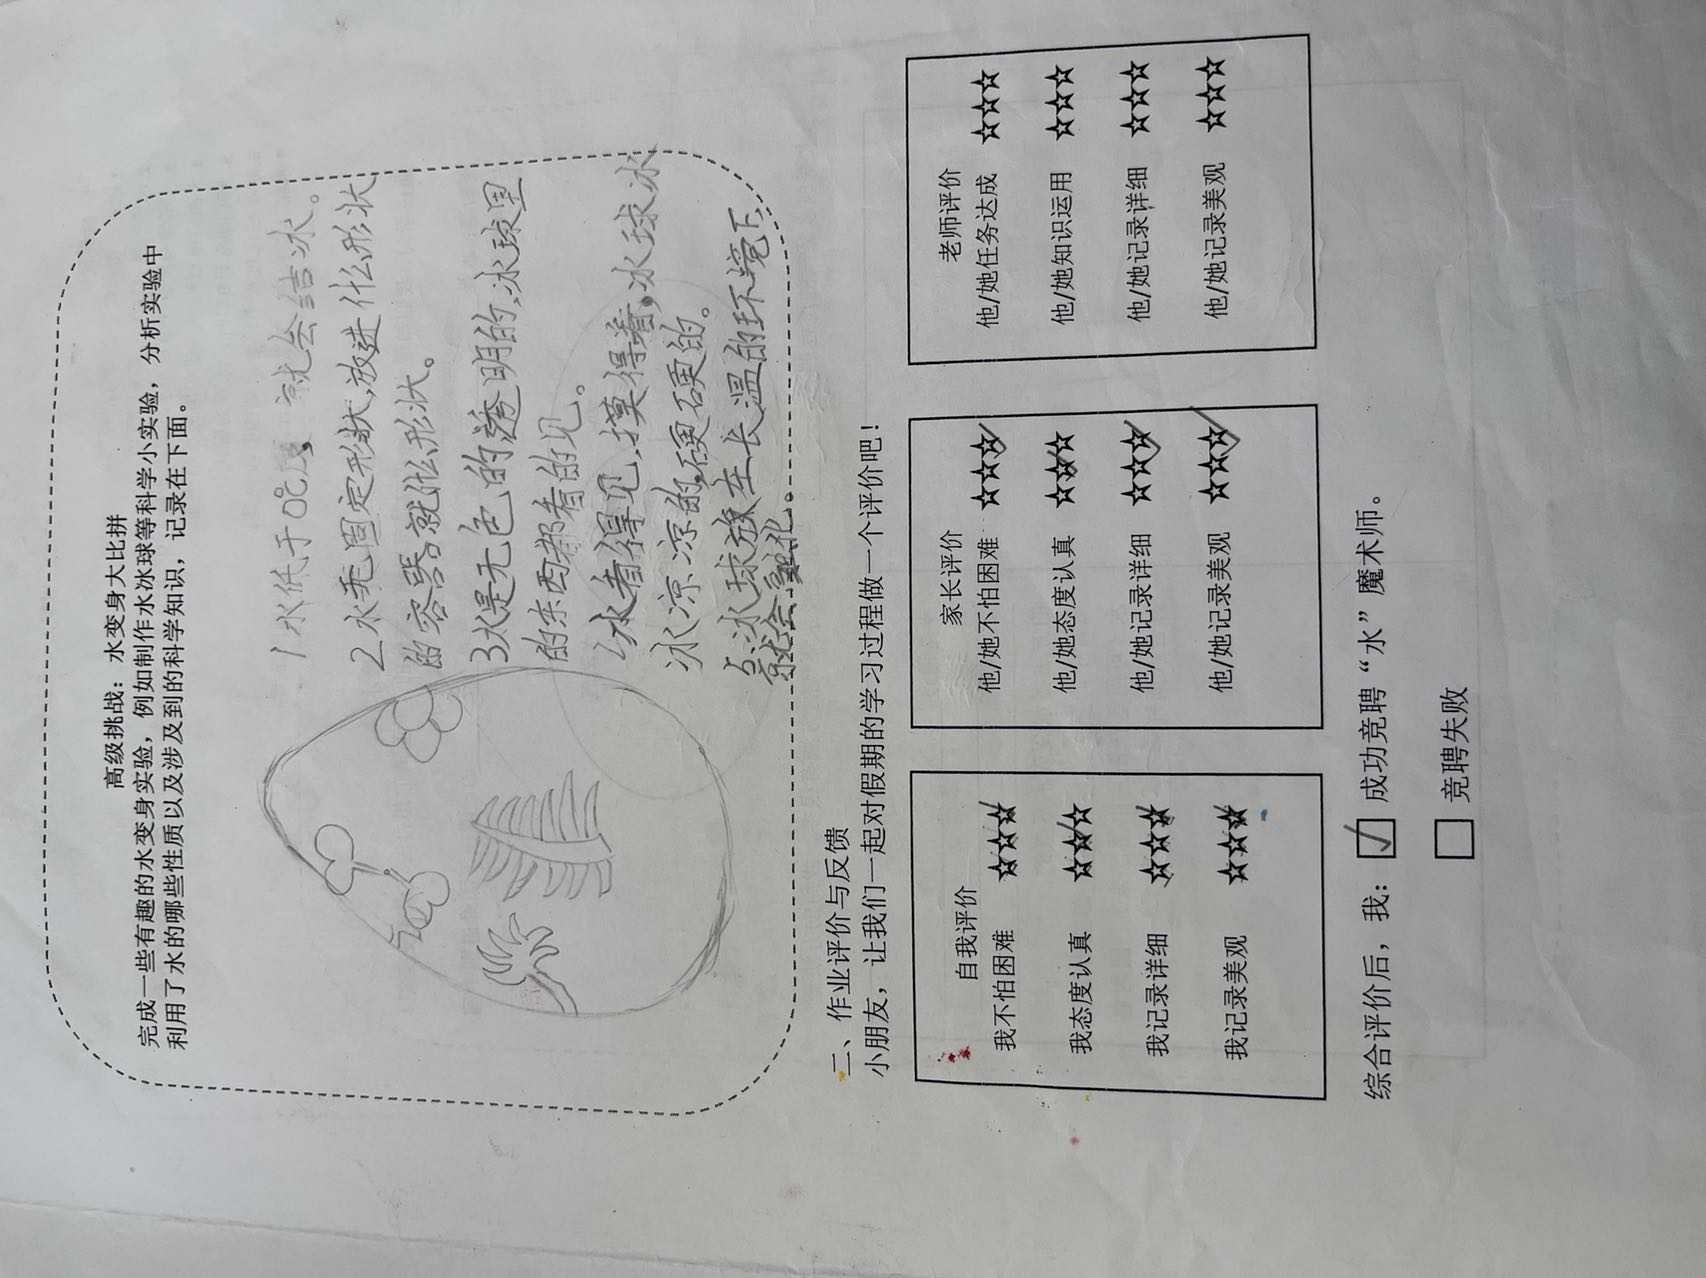 高级挑战：水变身大比拼
完成一些有趣的水变身实验，例如制作水冰球等科学小实验，分析实验中
利用了水的哪些性质以及涉及到的科学知识，记录在下面。
1水低于0℃，就会结冰。
2水无固定形状,放进什么形状
的容器就什么形状。
3水是无色的透明的,冰球里
的东西都看的见。
4水看得见,摸得着,冰球冰
冰凉凉的,硬硬的。
5冰球放在长温的环境下
就会融化。
二、作业评价与反馈
小朋友，让我们一起对假期的学习过程做一个评价吧！
自我评价
我不怕困难 ☆☆☆
我态度认真 ☆☆☆
我记录详细 ☆☆☆
我记录美观 ☆☆☆
家长评价
他/她不怕困难 ☆☆☆
他/她态度认真 ☆☆☆
他/她记录详细 ☆☆☆
他/她记录美观 ☆☆☆
老师评价
他/她任务达成 ☆☆☆
他/她知识运用 ☆☆☆
他/她记录详细 ☆☆☆
他/她记录美观 ☆☆☆
综合评价后，我：☑ 成功竞聘“水”魔术师。
□ 竞聘失败